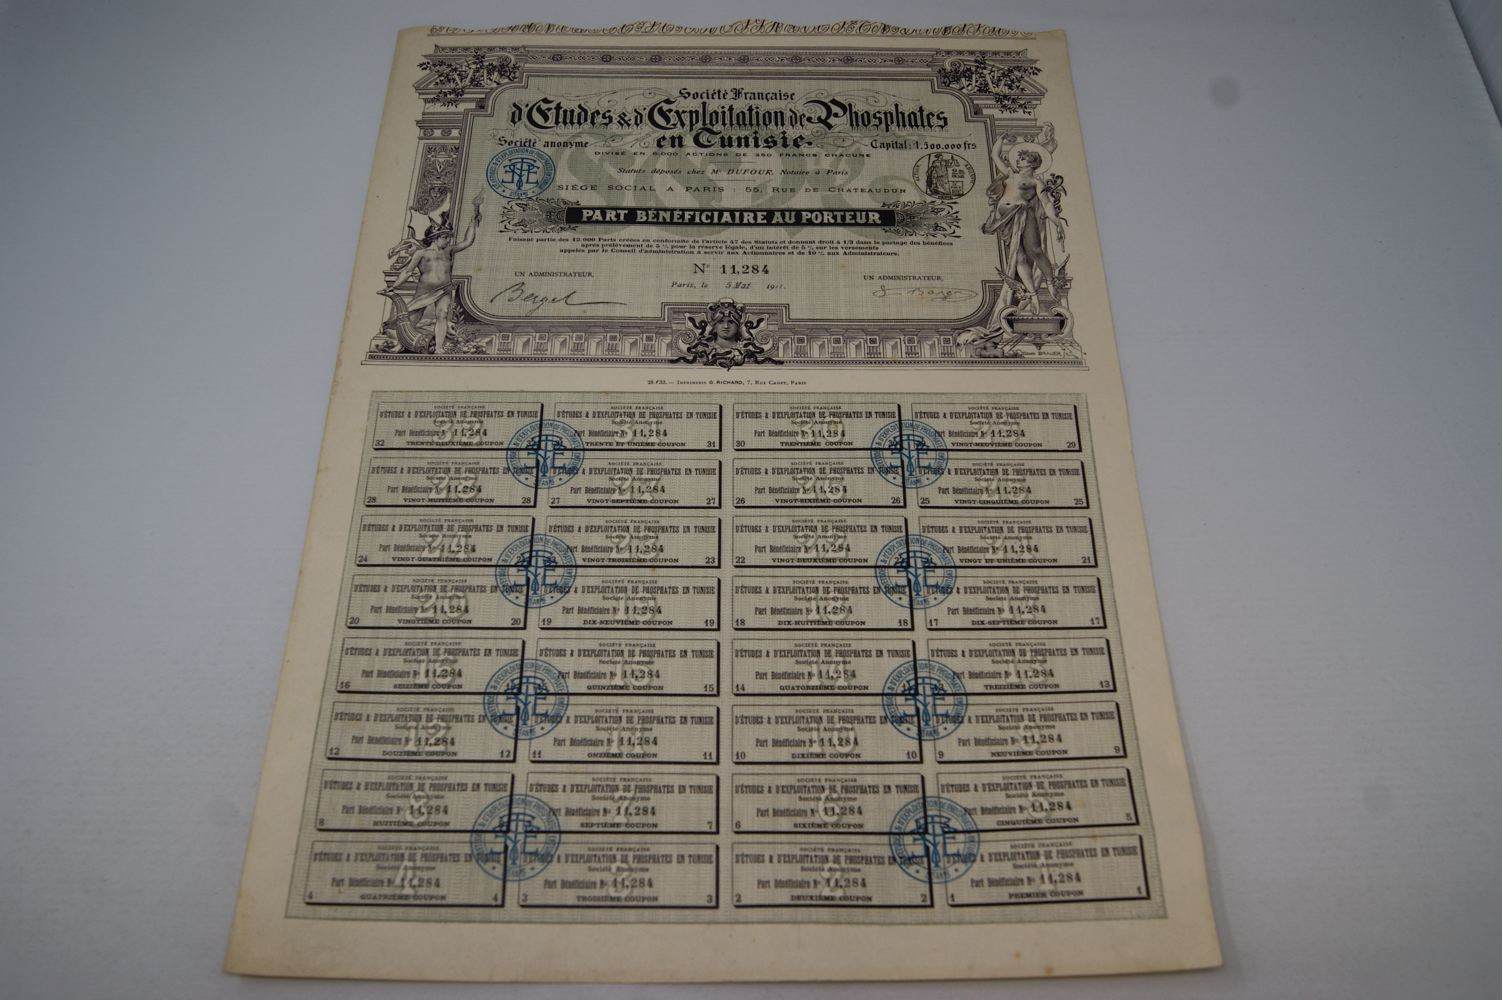 Société Française
d'Etudes & d'Exploitation de Phosphates
en Tunisie.
Société anonyme
Capital: 1.500.000 frs
DIVISÉ EN 6.000 ACTIONS DE 250 FRANCS CHACUNE
Statuts déposés chez Me DUFOUR, Notaire à Paris
SIÈGE SOCIAL A PARIS : 55, RUE DE CHATEAUDUN
PART BÉNÉFICIAIRE AU PORTEUR
Faisant partie des 12.000 Parts créées en conformité de l'Article 47 des Statuts et donnant droit à 1/3 dans le partage des bénéfices
après prélèvement de 5 % pour la réserve légale, d'un intérêt de 5 % sur les versements
appelés par le Conseil d'administration à servir aux Actionnaires et de 10 % aux Administrateurs.
No 11,284
UN ADMINISTRATEUR,
UN ADMINISTRATEUR,
Paris, le 5 Mai
28.F33.— IMPRIMERIE G. RICHARD, 7, RUE CADET, PARIS
SOCIÉTÉ FRANÇAISE
D'ÉTUDES & D'EXPLOITATION DE PHOSPHATES EN TUNISIE
Société Anonyme
Part Bénéficiaire No 11,284
32 TRENTE-DEUXIÈME COUPON
SOCIÉTÉ FRANÇAISE
D'ÉTUDES & D'EXPLOITATION DE PHOSPHATES EN TUNISIE
Société Anonyme
Part Bénéficiaire No 11,284
TRENTE ET UNIÈME COUPON 31
SOCIÉTÉ FRANÇAISE
D'ÉTUDES & D'EXPLOITATION DE PHOSPHATES EN TUNISIE
Société Anonyme
Part Bénéficiaire No 11,284
30 TRENTIÈME COUPON
SOCIÉTÉ FRANÇAISE
D'ÉTUDES & D'EXPLOITATION DE PHOSPHATES EN TUNISIE
Société Anonyme
Part Bénéficiaire No 11,284
VINGT-NEUVIÈME COUPON 29
SOCIÉTÉ FRANÇAISE
D'ÉTUDES & D'EXPLOITATION DE PHOSPHATES EN TUNISIE
Société Anonyme
Part Bénéficiaire No 11,284
28 VINGT-HUITIÈME COUPON 28
SOCIÉTÉ FRANÇAISE
D'ÉTUDES & D'EXPLOITATION DE PHOSPHATES EN TUNISIE
Société Anonyme
Part Bénéficiaire No 11,284
27 VINGT-SEPTIÈME COUPON 27
SOCIÉTÉ FRANÇAISE
D'ÉTUDES & D'EXPLOITATION DE PHOSPHATES EN TUNISIE
Société Anonyme
Part Bénéficiaire No 11,284
26 VINGT-SIXIÈME COUPON 26
SOCIÉTÉ FRANÇAISE
D'ÉTUDES & D'EXPLOITATION DE PHOSPHATES EN TUNISIE
Société Anonyme
Part Bénéficiaire No 11,284
25 VINGT-CINQUIÈME COUPON 25
SOCIÉTÉ FRANÇAISE
D'ÉTUDES & D'EXPLOITATION DE PHOSPHATES EN TUNISIE
Société Anonyme
Part Bénéficiaire No 11,284
24 VINGT-QUATRIÈME COUPON
SOCIÉTÉ FRANÇAISE
D'ÉTUDES & D'EXPLOITATION DE PHOSPHATES EN TUNISIE
Société Anonyme
Part Bénéficiaire No 11,284
VINGT-TROISIÈME COUPON 23
SOCIÉTÉ FRANÇAISE
D'ÉTUDES & D'EXPLOITATION DE PHOSPHATES EN TUNISIE
Société Anonyme
Part Bénéficiaire No 11,284
22 VINGT-DEUXIÈME COUPON
SOCIÉTÉ FRANÇAISE
D'ÉTUDES & D'EXPLOITATION DE PHOSPHATES EN TUNISIE
Société Anonyme
Part Bénéficiaire No 11,284
VINGT ET UNIÈME COUPON 21
SOCIÉTÉ FRANÇAISE
D'ÉTUDES & D'EXPLOITATION DE PHOSPHATES EN TUNISIE
Société Anonyme
Part Bénéficiaire No 11,284
20 VINGTIÈME COUPON 20
SOCIÉTÉ FRANÇAISE
D'ÉTUDES & D'EXPLOITATION DE PHOSPHATES EN TUNISIE
Société Anonyme
Part Bénéficiaire No 11,284
19 DIX-NEUVIÈME COUPON 19
SOCIÉTÉ FRANÇAISE
D'ÉTUDES & D'EXPLOITATION DE PHOSPHATES EN TUNISIE
Société Anonyme
Part Bénéficiaire No 11,284
18 DIX-HUITIÈME COUPON 18
SOCIÉTÉ FRANÇAISE
D'ÉTUDES & D'EXPLOITATION DE PHOSPHATES EN TUNISIE
Société Anonyme
Part Bénéficiaire No 11,284
17 DIX-SEPTIÈME COUPON 17
SOCIÉTÉ FRANÇAISE
D'ÉTUDES & D'EXPLOITATION DE PHOSPHATES EN TUNISIE
Société Anonyme
Part Bénéficiaire No 11,284
16 SEIZIÈME COUPON
SOCIÉTÉ FRANÇAISE
D'ÉTUDES & D'EXPLOITATION DE PHOSPHATES EN TUNISIE
Société Anonyme
Part Bénéficiaire No 11,284
QUINZIÈME COUPON 15
SOCIÉTÉ FRANÇAISE
D'ÉTUDES & D'EXPLOITATION DE PHOSPHATES EN TUNISIE
Société Anonyme
Part Bénéficiaire No 11,284
14 QUATORZIÈME COUPON
SOCIÉTÉ FRANÇAISE
D'ÉTUDES & D'EXPLOITATION DE PHOSPHATES EN TUNISIE
Société Anonyme
Part Bénéficiaire No 11,284
TREIZIÈME COUPON 13
SOCIÉTÉ FRANÇAISE
D'ÉTUDES & D'EXPLOITATION DE PHOSPHATES EN TUNISIE
Société Anonyme
Part Bénéficiaire No 11,284
12 DOUZIÈME COUPON 12
SOCIÉTÉ FRANÇAISE
D'ÉTUDES & D'EXPLOITATION DE PHOSPHATES EN TUNISIE
Société Anonyme
Part Bénéficiaire No 11,284
11 ONZIÈME COUPON 11
SOCIÉTÉ FRANÇAISE
D'ÉTUDES & D'EXPLOITATION DE PHOSPHATES EN TUNISIE
Société Anonyme
Part Bénéficiaire No 11,284
10 DIXIÈME COUPON 10
SOCIÉTÉ FRANÇAISE
D'ÉTUDES & D'EXPLOITATION DE PHOSPHATES EN TUNISIE
Société Anonyme
Part Bénéficiaire No 11,284
9 NEUVIÈME COUPON 9
SOCIÉTÉ FRANÇAISE
D'ÉTUDES & D'EXPLOITATION DE PHOSPHATES EN TUNISIE
Société Anonyme
Part Bénéficiaire No 11,284
8 HUITIÈME COUPON
SOCIÉTÉ FRANÇAISE
D'ÉTUDES & D'EXPLOITATION DE PHOSPHATES EN TUNISIE
Société Anonyme
Part Bénéficiaire No 11,284
SEPTIÈME COUPON 7
SOCIÉTÉ FRANÇAISE
D'ÉTUDES & D'EXPLOITATION DE PHOSPHATES EN TUNISIE
Société Anonyme
Part Bénéficiaire No 11,284
6 SIXIÈME COUPON
SOCIÉTÉ FRANÇAISE
D'ÉTUDES & D'EXPLOITATION DE PHOSPHATES EN TUNISIE
Société Anonyme
Part Bénéficiaire No 11,284
CINQUIÈME COUPON 5
SOCIÉTÉ FRANÇAISE
D'ÉTUDES & D'EXPLOITATION DE PHOSPHATES EN TUNISIE
Société Anonyme
Part Bénéficiaire No 11,284
4 QUATRIÈME COUPON 4
SOCIÉTÉ FRANÇAISE
D'ÉTUDES & D'EXPLOITATION DE PHOSPHATES EN TUNISIE
Société Anonyme
Part Bénéficiaire No 11,284
3 TROISIÈME COUPON 3
SOCIÉTÉ FRANÇAISE
D'ÉTUDES & D'EXPLOITATION DE PHOSPHATES EN TUNISIE
Société Anonyme
Part Bénéficiaire No 11,284
2 DEUXIÈME COUPON 2
SOCIÉTÉ FRANÇAISE
D'ÉTUDES & D'EXPLOITATION DE PHOSPHATES EN TUNISIE
Société Anonyme
Part Bénéficiaire No 11,284
1 PREMIER COUPON 1